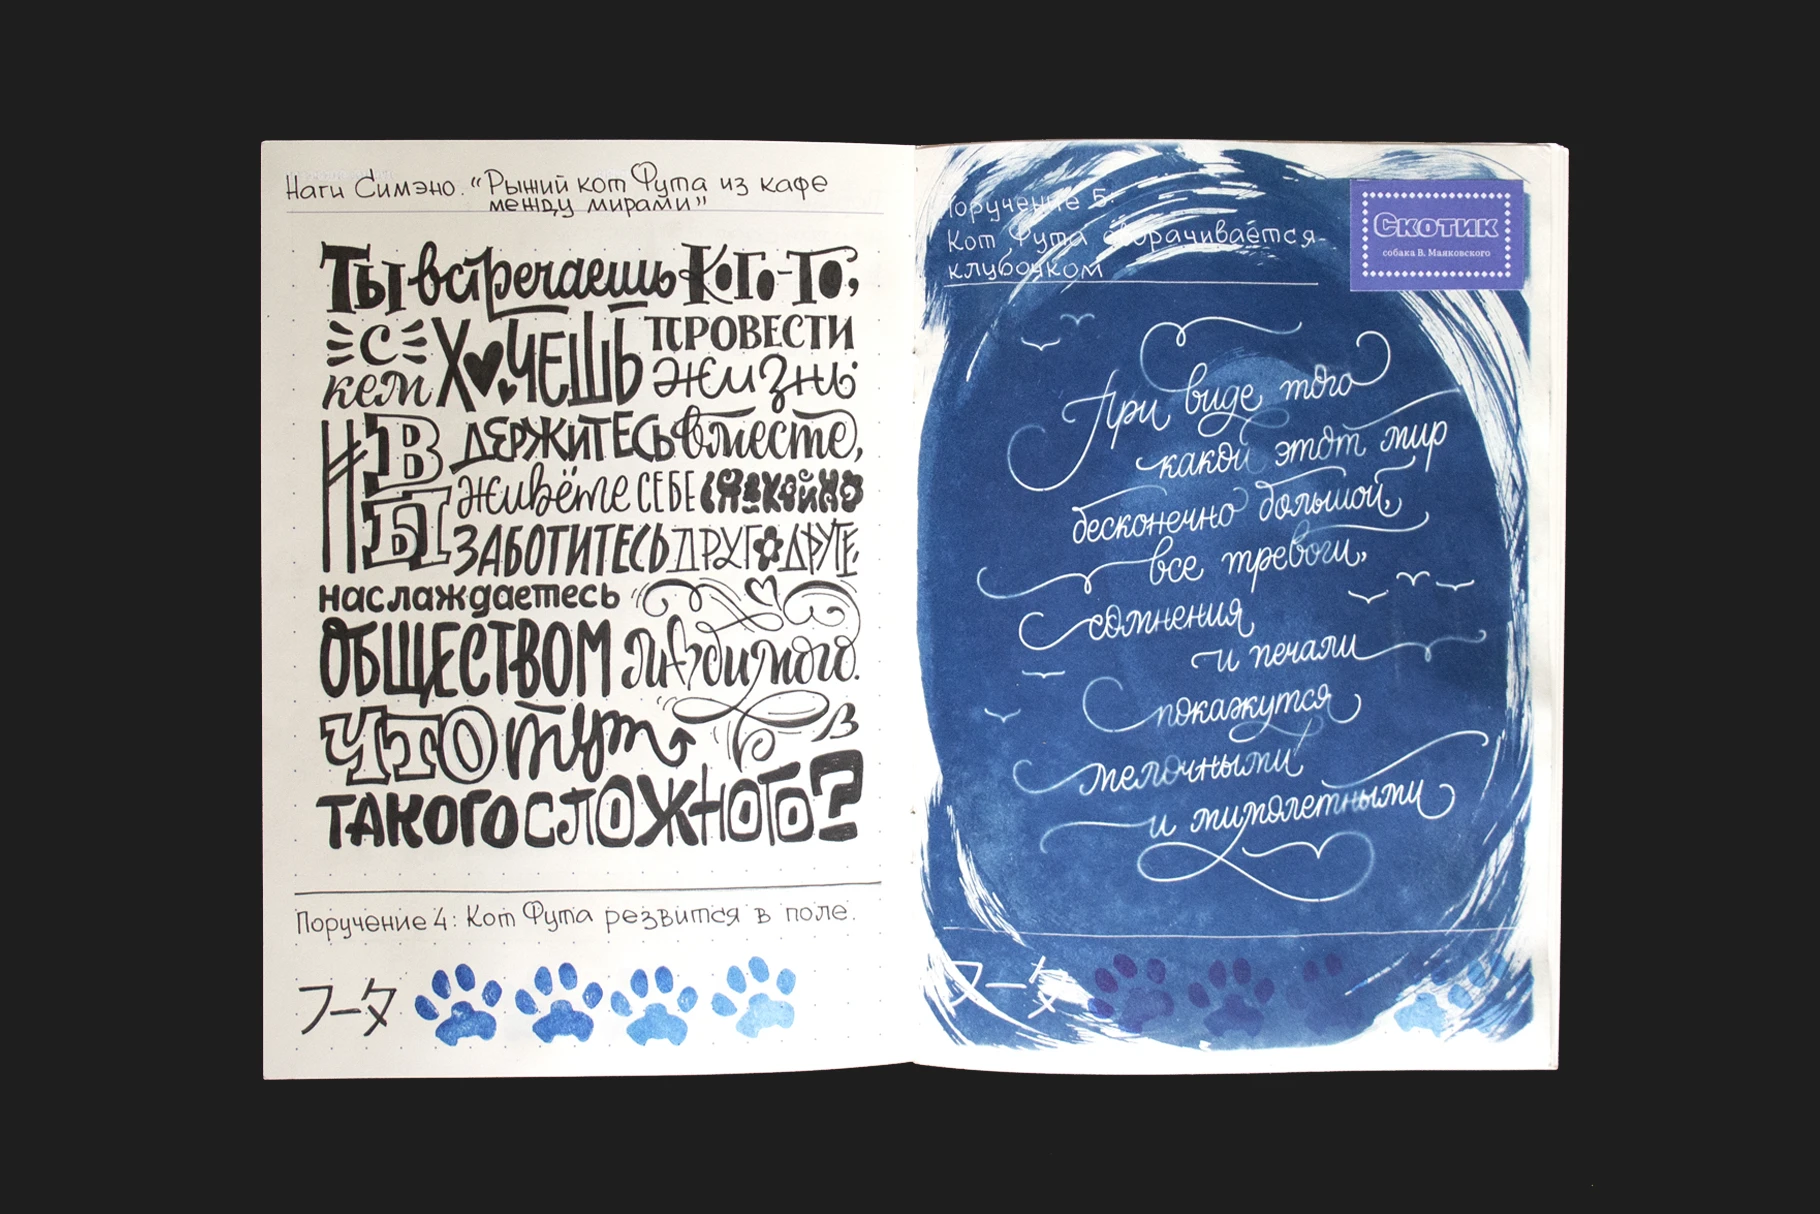 Наги Симэно. "Рыжий кот Фута из кафе
между мирами"
Ты встречаешь кого-то,
с кем хочешь провести
жизнь.
И вы держитесь вместе,
живёте себе спокойно
заботитесь друг о друге,
наслаждаетесь
обществом любимого.
Что тут в
такого сложного?
Поручение 4: Кот Фута резвится в поле.
フータ
Поручение 5:
Кот Фута сворачивается
клубочком
Скотик
собака В. Маяковского
При виде того
какой этот мир
бесконечно большой,
все тревоги,
сомнения
и печали
покажутся
мелочными
и мимолетными
フータ